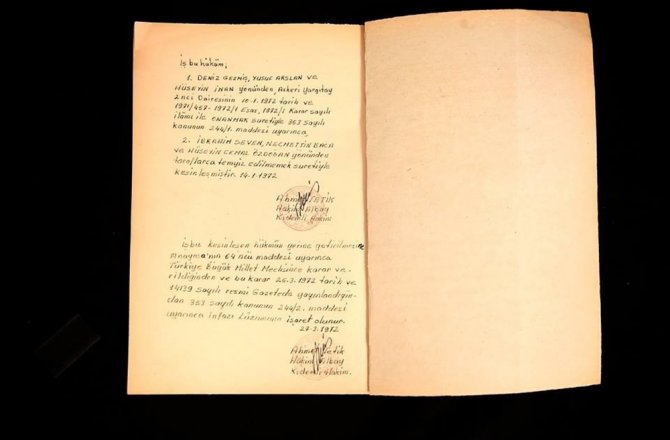 İş bu hüküm;
1. DENİZ GEZMİŞ, YUSUF ARSLAN ve
HÜSEYİN İNAN yönünden, Askeri Yargıtay
2nci Dairesinin 10.1.1972 tarih ve
1971/457-1972/1 Esas, 1972/1 Karar sayılı
ilâmı ile ONANMAK suretiyle 353 sayılı
kanunun 244/1. maddesi uyarınca,
2. İBRAHİM SEVEN, NECMETTİN BACA
ve HÜSEYİN CEMAL ÖZDOĞAN yönünden
taraflarca temyiz edilmemek suretiyle
kesinleşmiştir. 14.1.1972
Ahmet TETİK
Hâkim Albay
Kıdemli Hâkim
İşbu kesinleşen hükmün yerine getirilmesine
Anayasa'nın 64 ncü maddesi uyarınca
Türkiye Büyük Millet Meclisince karar ve-
rildiğinden ve bu karar 25.3.1972 tarih ve
14139 sayılı resmi Gazetede yayınlandığın-
dan 353 sayılı kanunun 244/2. maddesi
uyarınca infazı lüzumuna işaret olunur.
27.3.1972
Ahmet Tetik
Hâkim Albay
Kıdemli Hâkim.